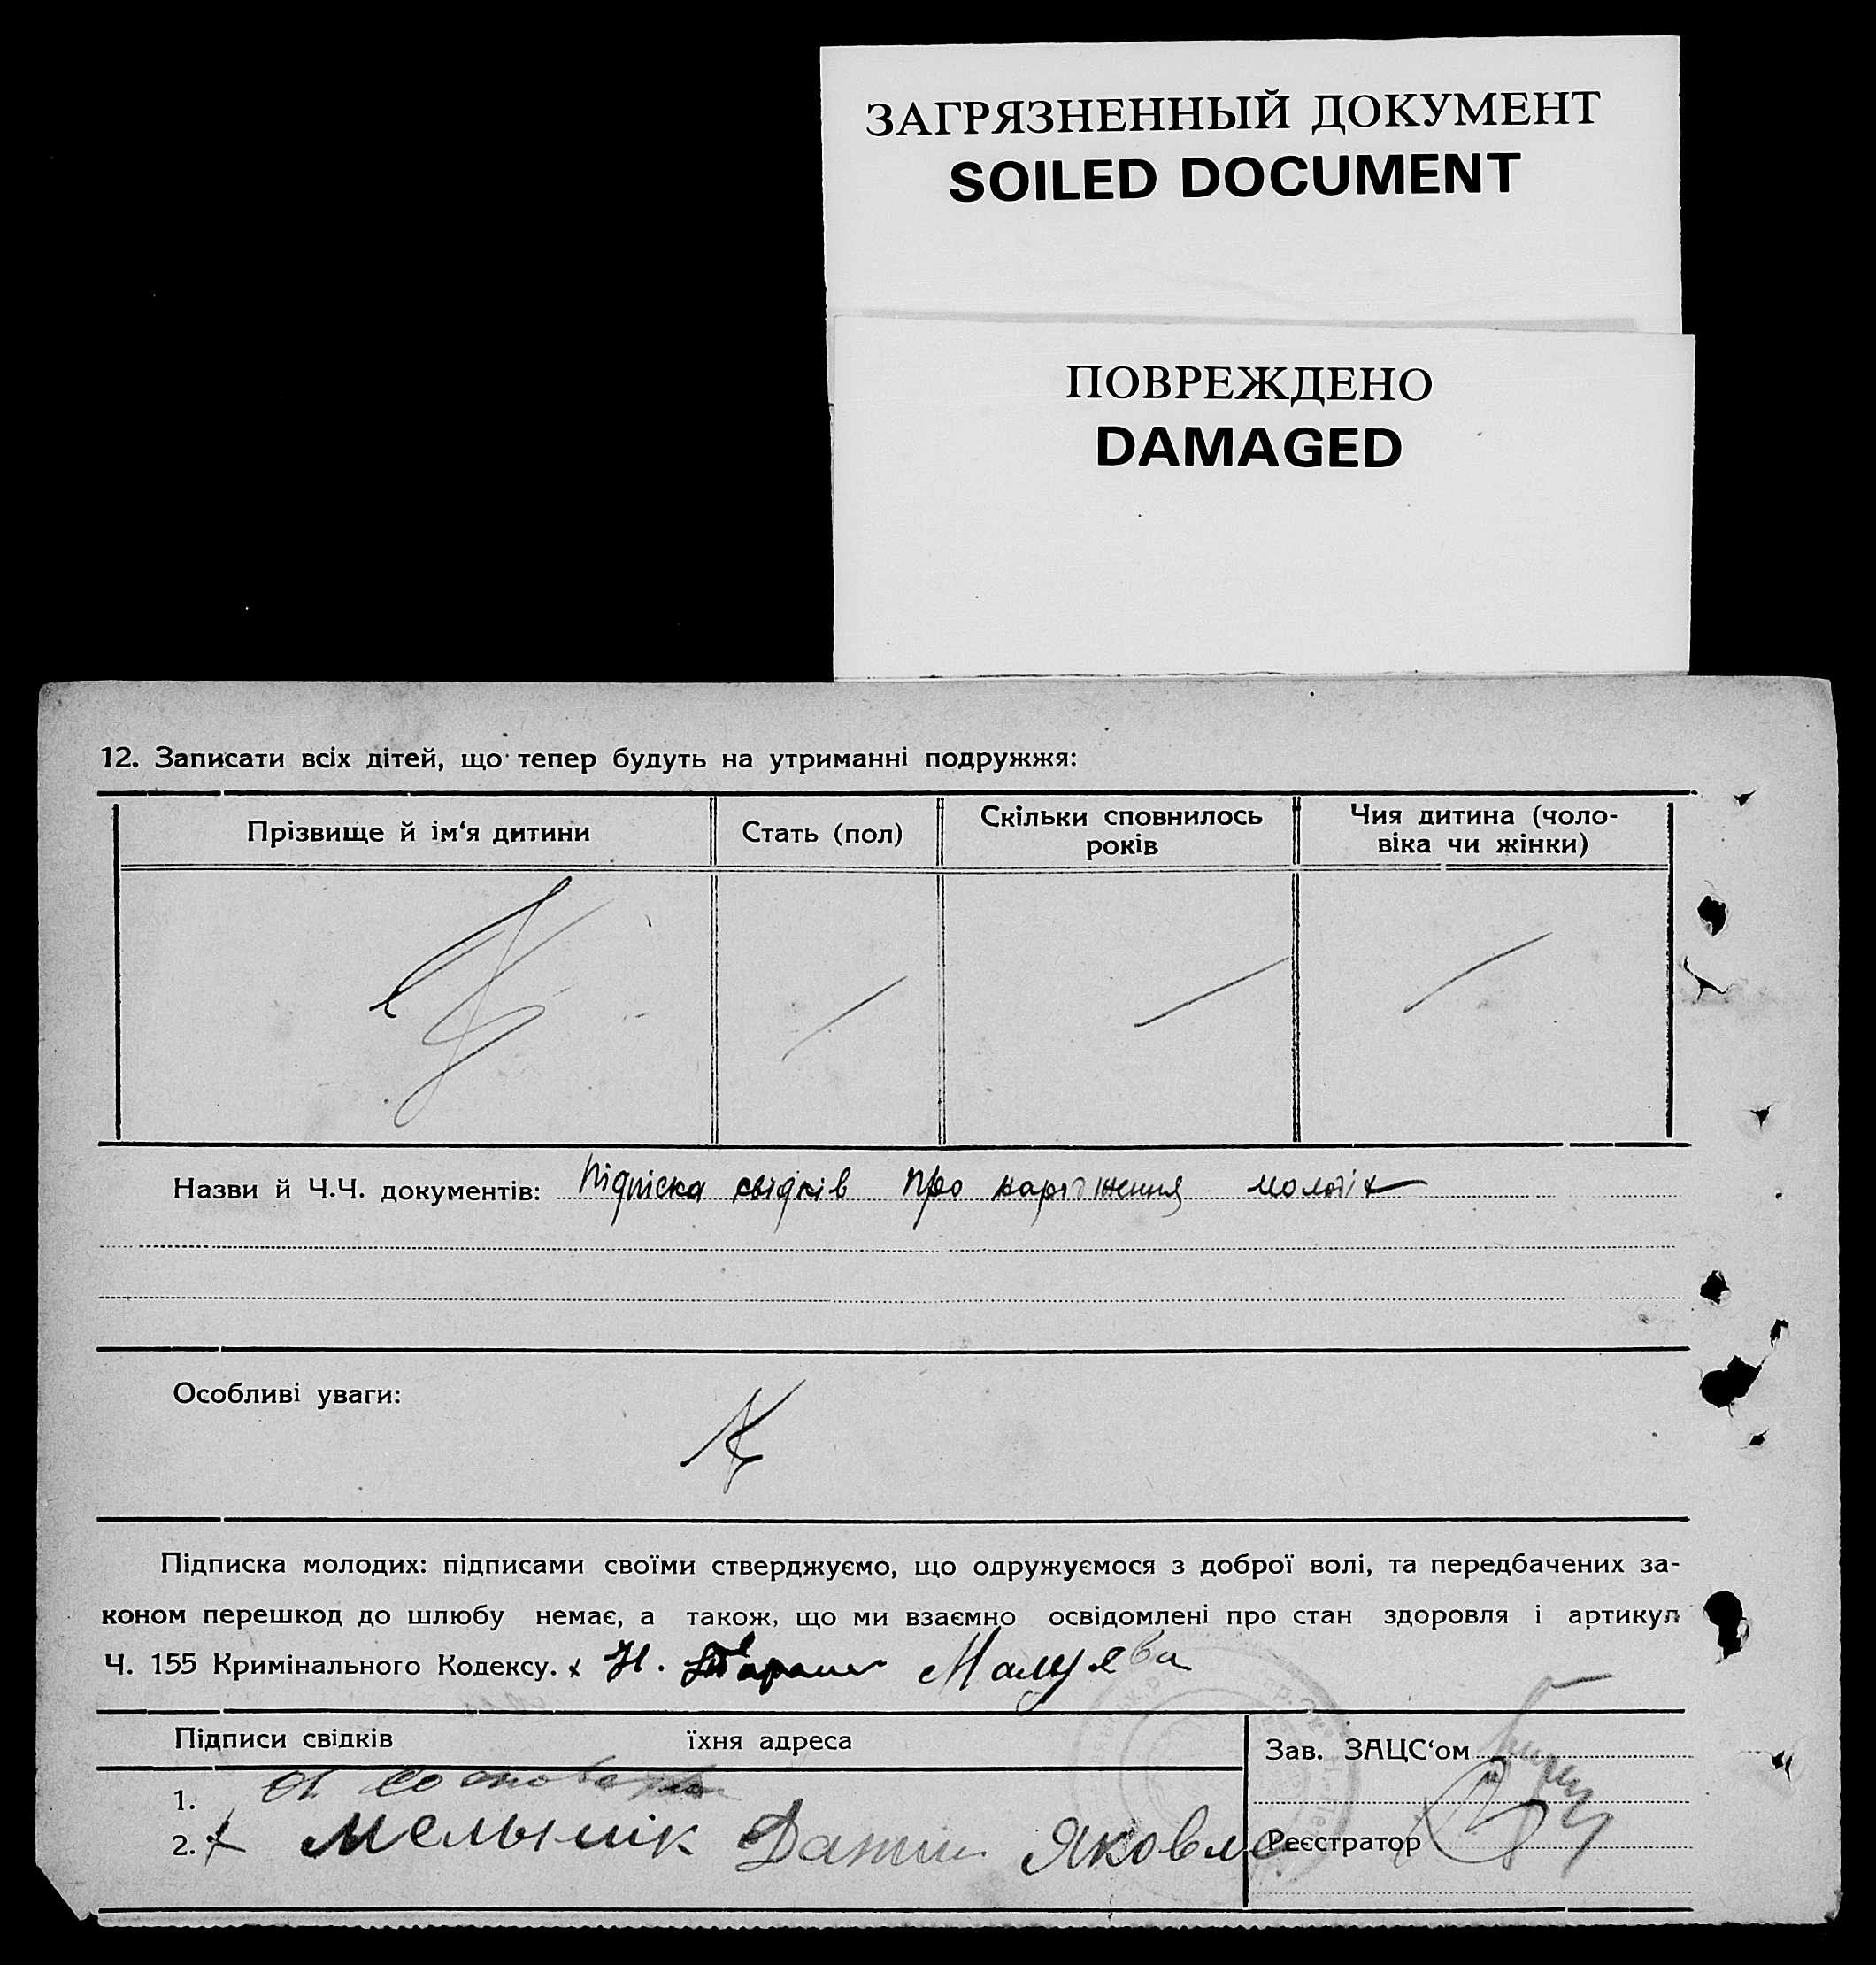 ЗАГРЯЗНЕННЫЙ ДОКУМЕНТ
SOILED DOCUMENT
ПОВРЕЖДЕНО
DAMAGED
12. Записати всіх дітей, що тепер будуть на утриманні подружжя:
Прізвище й ім‘я дитини
Стать (пол)
Скільки сповнилось
років
Чия дитина (чоло-
віка чи жінки)
Назви й Ч.Ч. документів: Підписка свідків про народження молодіх
Особливі уваги:
Підписка молодих: підписами своїми стверджуємо, що одружуємося з доброї волі, та передбачених за-
коном перешкод до шлюбу немає, а також, що ми взаємно освідомлені про стан здоровля і артикул
Ч. 155 Кримінального Кодексу. х Н.
Підписи свідків їхня адреса
1.
2. х Мельнік Яковле
Зав. ЗАЦС‘ом
Реєстратор